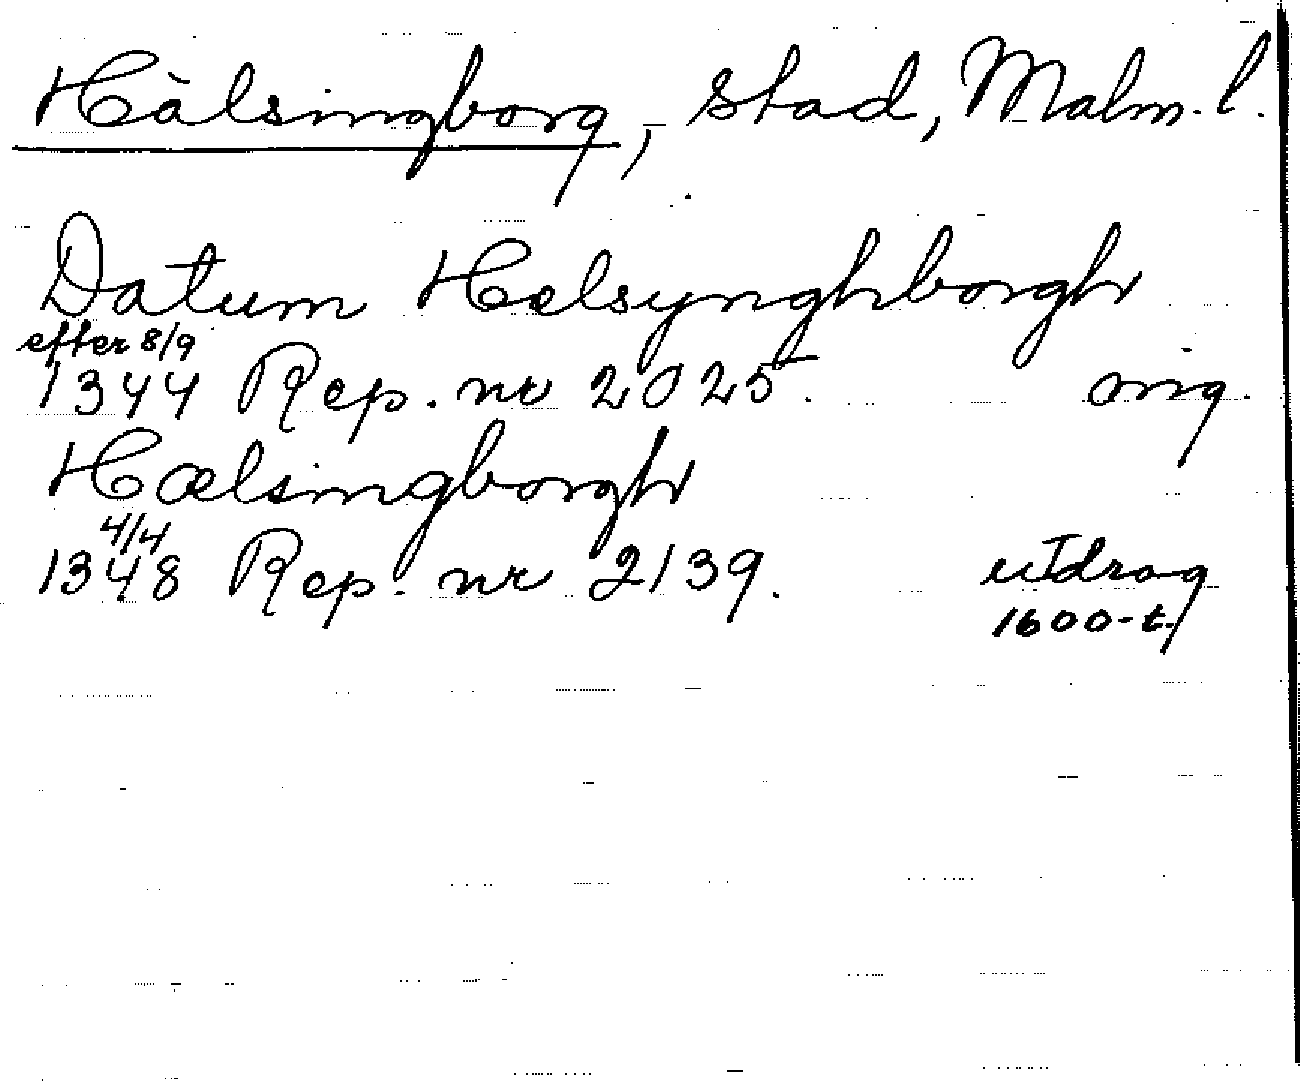 Hälsingborg, stad, Malm. l.
Datum Helsynghborgh
efter 8/9
1344 Rep. nr 2025. orig.
Hælsingborgh
4/4
1348 Rep. nr 2139. utdrag
1600-t.